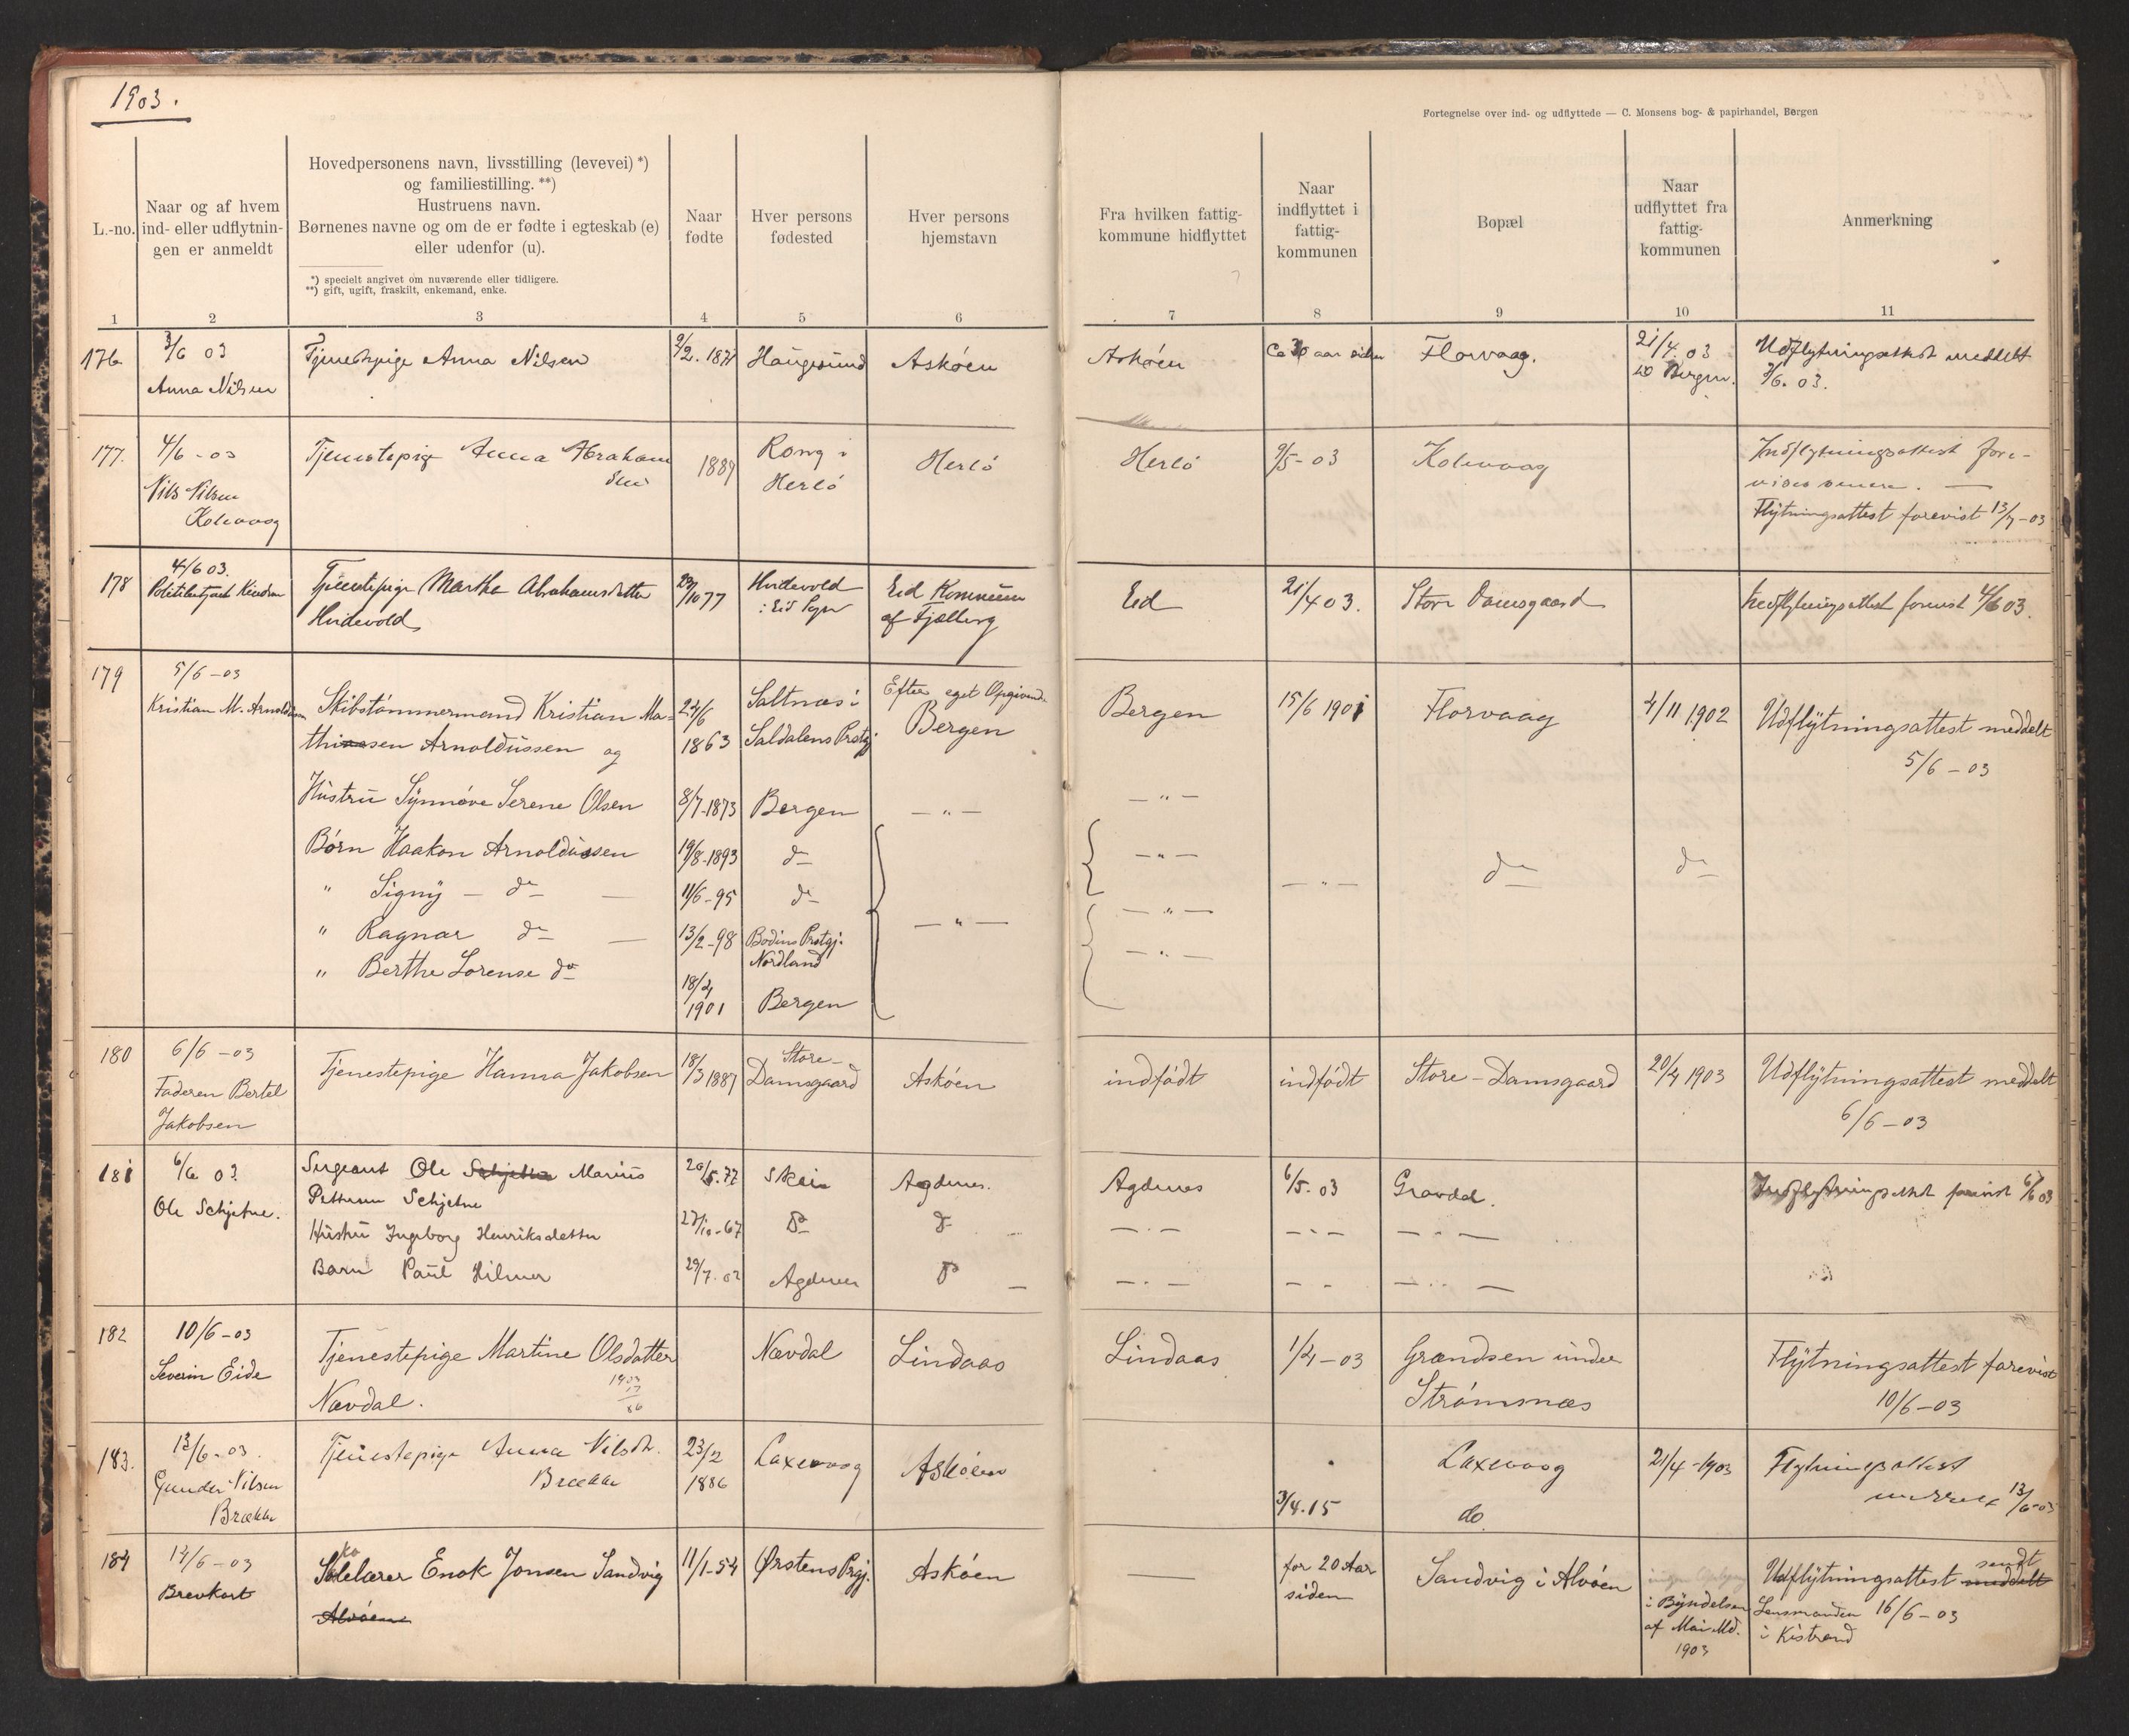 1903.
Fortegnelse over ind- og udflyttede — C. Monsens bog- & papirhandel, Bergen
L.-no.
Naar og af hvem
ind- eller udflytnin-
gen er anmeldt
Hovedpersonens navn, livsstilling (levevei) *)
og familiestilling. **)
Hustruens navn.
Børnenes navne og om de er fødte i egteskab (e)
eller udenfor (u).
*) specielt angivet om nuværende eller tidligere.
**) gift, ugift, fraskilt, enkemand, enke.
Naar
fødte
Hver persons
fødested
Hver persons
hjemstavn
Fra hvilken fattig-
kommune hidflyttet
Naar
indflyttet i
fattig-
kommunen
Bopæl
Naar
udflyttet fra
fattig-
kommunen
Anmerkning
1 2 3 4 5 6 7 8 9 10 11
176 3/6 03 Tjenestepige Anna Nilsen 2/2. 1871 Haugesund Askøen Askøen Ca 30 aar siden Florvaag. 21/4 03 Udflytningsattest meddelt
Anna Nilsen Bergen. 3/6. 03.
177. 4/6 - 03 Tjenestepig Anna Abraham Rong i Herlö Herlö 9/5 - 03 Kolevaag Indflytningsattest fore-
Nils Nilsen sen 1889 Herlö vises senere. —
Kolevaag Flytningsattest forevist 13/7 - 03
178 4/6 03. Tjenestepige Martha Abrahamsdatter 23/10 77 Hvidevold Eid Kommune Eid 21/4 03. Store Damsgaard Indflytningsattest forevist 4/6 03.
Politibetjent Hvidevold i Eid Sogn af Fjelberg
179 5/6 - 03
Kristian M. Arnoldussen Skibstømmermand Kristian Ma- 24/6 Saltnæs i Efter eget Opgivende Bergen 15/6 1901 Florvaag 4/11 1902 Udflytningsattest meddelt
thisen Arnoldussen og 1863 Saldalens Prstgj Bergen 5/6 - 03
Hustru Synnøve Serene Olsen 8/7 - 1873 Bergen — „ — — „ —
Børn Haakon Arnoldussen 19/8 - 1893 do — „ — — „ — do do
„ Signy — do — 11/6 - 95 do — „ —
„ Ragnar do — 13/2 - 98 Bodins Prstgj. — „ — — „ —
Nordland
„ Berthe Lorense do 18/4
1901 Bergen
180 6/6 - 03 Tjenestepige Hanna Jakobsen 18/3 1887 Store- Askøen indfødt indfødt Store-Damsgaard 20/4 1903 Udflytningsattest meddelt
Faderen Bertel Damsgaard 6/6 - 03
Jakobsen
181 6/6 03. Sergeant Ole Schjetne Marius 20/5. 77 Skei Agdenes. Agdenes 6/5. 03 Gravdal. Indflytningsattest forevist 6/6 03
Ole Schjetne. Pettersen Schjetne
Hustru Ingeborg Henriksdatter 27/10 - 67 Do do — „ — — „ — — „ —
Barn Paul Hilmer 29/7. 02 Agdenes Do — „ — — „ — — „ —
182 10/6 - 03 Tjenestepige Martine Olsdatter Nævdal Lindaas Lindaas 1/4 - 03 Grændsen under Flytningsattest forevist
Severin Eide Nævdal. Strømsnæs 10/6 - 03
1903
17
86
183. 13/6 - 03. Tjenestepige Anna Nilsdtr. 23/2 Laxevaag Askøen Laxevaag 21/4 - 1903 Flytningsattest
Gunder Nilsen Brække 1886 13/6 - 03
Brække 3/4. 15 do.
184 14/6 - 03 Skolelærer Enok Jonsen Sandvig 11/1 - 54 Ørstens Prgj. Askøen — for 20 Aar Sandvig i Alvøen Udflytningsattest meddelt sendt
Brevkort Alvøen siden i Byndelsen Lensmanden 16/6 - 03
af Mai Md. i Kistrand
1903